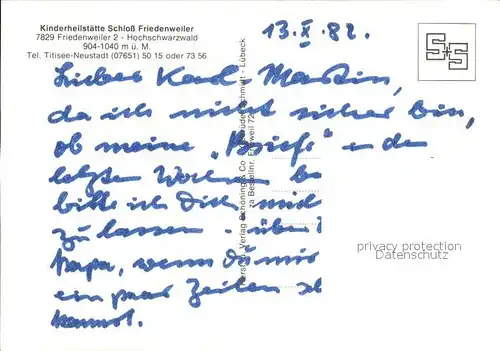 Kinderheilstätte Schloß Friedenweiler
7829 Friedenweiler 2 - Hochschwarzwald
904-1040 m ü. M.
Tel. Titisee-Neustadt (07651) 50 15 oder 73 56
13. X. 82.
S+S
Lieber Karl-Martin,
da ich nicht sicher bin,
ob meine „Briefe“ in den
letzten Wochen be
bitte ich Dich mich
zu lassen - über
Papa, wenn du mir
ein paar Zeilen
kannst.
Verlag Schöning & Co
Schmidt - Lübeck
Bestellnr.
privacy protection
Datenschutz